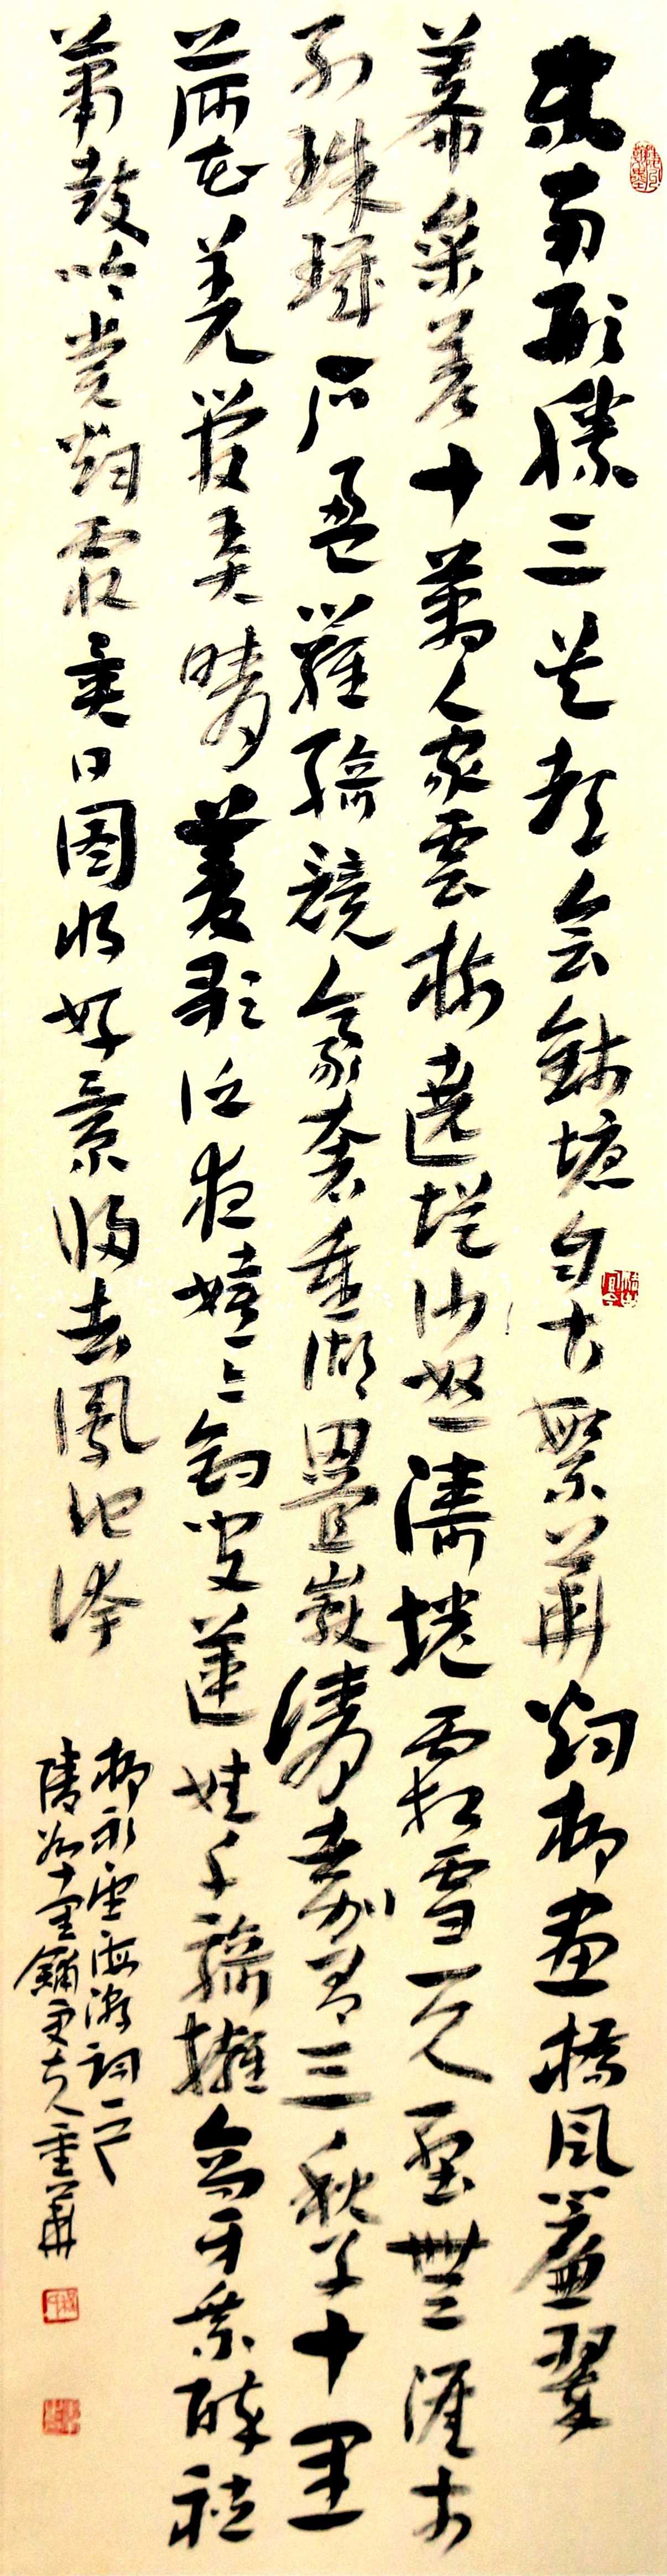 東南形勝三吳都會錢塘自古繁華煙柳畫橋風簾翠
幕參差十萬人家雲樹遶堤沙怒濤捲霜雪天塹無涯市
列珠璣户盈羅綺競豪奢重湖疊巘清嘉有三秋子十里
荷花羌管弄晴菱歌泛夜嬉嬉釣叟蓮娃千騎擁高牙乘醉聽
簫鼓吟賞煙霞異日圖將好景歸去鳳池誇
柳永望海潮詞一首